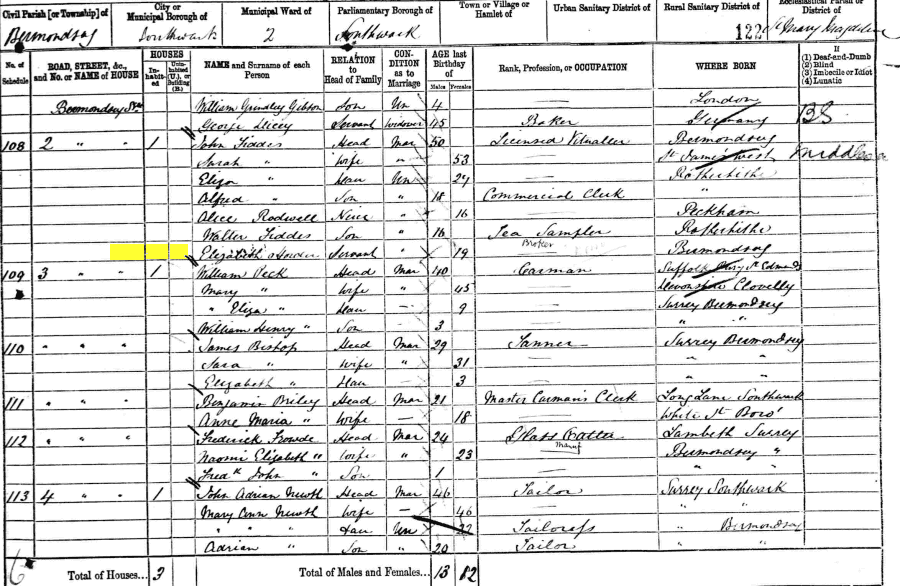 Civil Parish [or Township] of
Bermondsey
City or
Municipal Borough of
Southwark
Municipal Ward of
2
Parliamentary Borough of
Southwark
Town or Village or
Hamlet of
Urban Sanitary District of
Rural Sanitary District of
Ecclesiastical Parish or
District of
St Mary Magdalene
122
No. of Schedule
ROAD, STREET, &c., and No. or NAME of HOUSE
HOUSES
In-habit-ed
Unin-habited (U.), or Building (B.)
NAME and Surname of each Person
RELATION to Head of Family
CON-DITION as to Marriage
AGE last Birthday of
Males Females
Rank, Profession, or OCCUPATION
WHERE BORN
If
(1) Deaf-and-Dumb
(2) Blind
(3) Imbecile or Idiot
(4) Lunatic
Bermondsey William Gibson Son Un 4 London
George Servant Widower 45 Baker Germany BS
108 2 " " 1 John Fiddes Head Mar 50 Licensed Vitualler Bermondsey
Sarah " Wife " 53 St James West Middlesex
Eliza " Dau Un 27 Rotherhithe
Alfred " Son " 18 Commercial Clerk "
Alice Rodwell Niece " 16 Peckham
Walter Fiddes Son " 16 Tea Sampler Rotherhithe
Broker
Elizabeth Servant " 19 Bermondsey
109 3 " " 1 William Peck Head Mar 40 Carman Suffolk Bury St Edmunds
Mary " Wife " 45 Devonshire Clovelly
" Eliza " Dau — 9 Surrey Bermondsey
William Henry " Son 3 " "
110 " " " James Bishop Head Mar 29 Tanner Surrey Bermondsey
Sara " Wife " 31 " "
Elizabeth " Dau — 3 " "
111 " " " Benjamin Briley Head Mar 21 Master Carman's Clerk Long Lane Southwark
Anne Maria " Wife — 18 White St Boro'
112 " " " Frederick Frowde Head Mar 24 Lambeth Surrey
Manuf
Naomi Elizabeth " Wife " 23 Bermondsey "
Fredk John " Son 1 " "
113 4 " " 1 John Adrian Newth Head Mar 46 Tailor Surrey Southwark
Mary Ann Newth Wife — 46
" " " Dau Un 22 Tailoress " Bermondsey
Adrian " Son " 20 Tailor " "
6
Total of Houses... 3
Total of Males and Females... 13 12